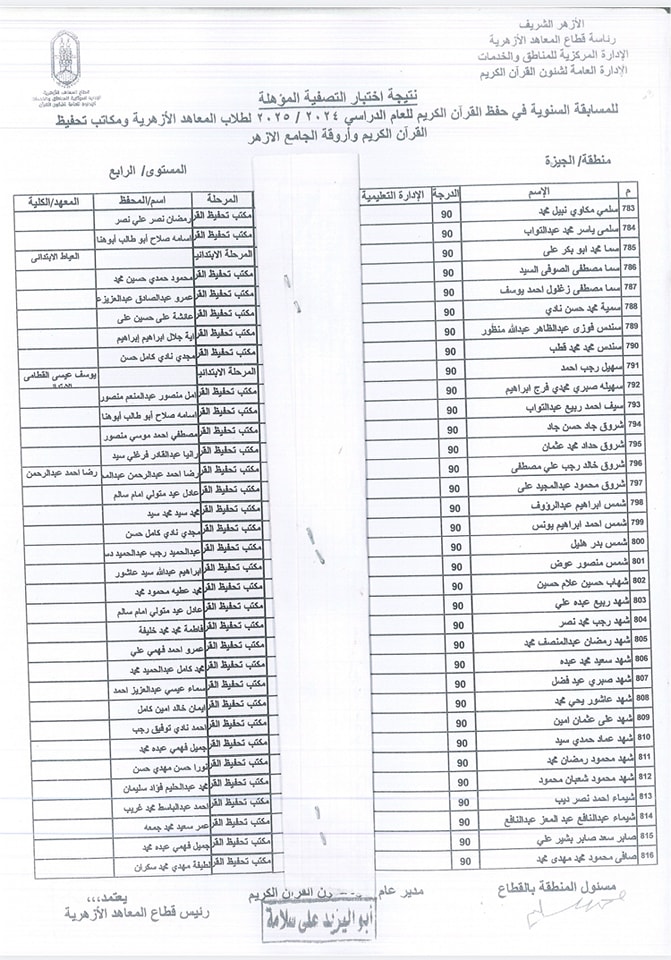 الأزهر الشريف
رئاسة قطاع المعاهد الأزهرية
الإدارة المركزية للمناطق والخدمات
الإدارة العامة لشئون القرآن الكريم
نتيجة اختبار التصفية المؤهلة
للمسابقة السنوية في حفظ القرآن الكريم للعام الدراسي ٢٠٢٤ / ٢٠٢٥ لطلاب المعاهد الأزهرية ومكاتب تحفيظ
القرآن الكريم وأروقة الجامع الازهر
منطقة/ الجيزة
المستوى/ الرابع
م الإسم الدرجة الإدارة التعليمية المرحلة اسم/المحفظ المعهد/الكلية
783 سلمي مكاوي نبيل محمد 90 مكتب تحفيظ القر رمضان نصر علي نصر
784 سلمى ياسر محمد عبدالتواب 90 مكتب تحفيظ القر اسامه صلاح أبو طالب أبوهنا
785 سما محمد ابو بكر على 90 المرحلة الابتدائي العياط الابتدائى
786 سما مصطفى الصوفى السيد 90 مكتب تحفيظ القر محمود حمدي حسين محمد
787 سما مصطفى زغلول احمد يوسف 90 مكتب تحفيظ القر عمرو عبدالصادق عبدالعزيزع
788 سمية محمد حسن نادي 90 مكتب تحفيظ القر عائشة على حسين على
789 سندس فوزى عبدالظاهر عبدالله منظور 90 مكتب تحفيظ القر اية جلال ابراهيم إبراهيم
790 سندس محمد محمد قطب 90 مكتب تحفيظ القر مجدي نادي كامل حسن
791 سهيل رجب احمد 90 المرحلة الابتدائي يوسف عيسى القطامى
792 سهيله صبري محمدي فرج ابراهيم 90 مكتب تحفيظ القر امل منصور عبدالمنعم منصور
793 سيف احمد ربيع عبدالتواب 90 مكتب تحفيظ القر اسامه صلاح أبو طالب أبوهنا
794 شروق جاد حسن جاد 90 مكتب تحفيظ القر مصطفي احمد موسي منصور
795 شروق حداد محمد عثمان 90 مكتب تحفيظ القر رانيا عبدالقادر فرغلي سيد
796 شروق خالد رجب علي مصطفى 90 مكتب تحفيظ القر رضا احمد عبدالرحمن عبدالم رضا احمد عبدالرحمن
797 شروق محمود عبدالمجيد على 90 مكتب تحفيظ القر عادل عبد متولي امام سالم
798 شمس ابراهيم عبدالرؤوف 90 مكتب تحفيظ القر محمد سيد محمد سيد
799 شمس احمد ابراهيم يونس 90 مكتب تحفيظ القر مجدي نادي كامل حسن
800 شمس بدر هليل 90 مكتب تحفيظ القر عبدالحميد رجب عبدالحميد دس
801 شمس منصور عوض 90 مكتب تحفيظ القر ابراهيم عبدالله سيد عاشور
802 شهاب حسين علام حسين 90 مكتب تحفيظ القر محمد عطيه محمود محمد
803 شهد ربيع عبده علي 90 مكتب تحفيظ القر عادل عبد متولي امام سالم
804 شهد رجب محمد نصر 90 مكتب تحفيظ القر فاطمة محمد محمد خليفة
805 شهد رمضان عبدالمنصف محمد 90 مكتب تحفيظ القر عمرو احمد فهمي علي
806 شهد سعيد محمد عبده 90 مكتب تحفيظ القر محمد كامل عبدالحميد محمد
807 شهد صبري عبد فضل 90 مكتب تحفيظ القر سماء عيسي عبدالعزيز احمد
808 شهد عاشور يحي محمد 90 مكتب تحفيظ القر ايمان خالد امين كامل
809 شهد على عثمان امين 90 مكتب تحفيظ القر احمد نادي توفيق رجب
810 شهد عماد حمدي سيد 90 مكتب تحفيظ القر جميل فهمي عبده محمد
811 شهد محمود رمضان محمد 90 مكتب تحفيظ القر نورا حسن مهدي حسن
812 شهد محمود شعبان محمود 90 مكتب تحفيظ القر محمد عبدالحليم فؤاد سليمان
813 شيماء احمد نصر ديب 90 مكتب تحفيظ القر احمد عبدالباسط محمد غريب
814 شيماء عبدالنافع عبد المعز عبدالنافع 90 مكتب تحفيظ القر عمر سعيد محمد جمعه
815 صابر سعد صابر بشير علي 90 مكتب تحفيظ القر جميل فهمي عبده محمد
816 صافى محمود محمد مهدى محمد 90 مكتب تحفيظ القر لطيفة مهدي محمد سكران
مسئول المنطقة بالقطاع
مدير عام ون القرآن الكريم
أبو اليزيد على سلامة
يعتمد،،،
رئيس قطاع المعاهد الأزهرية